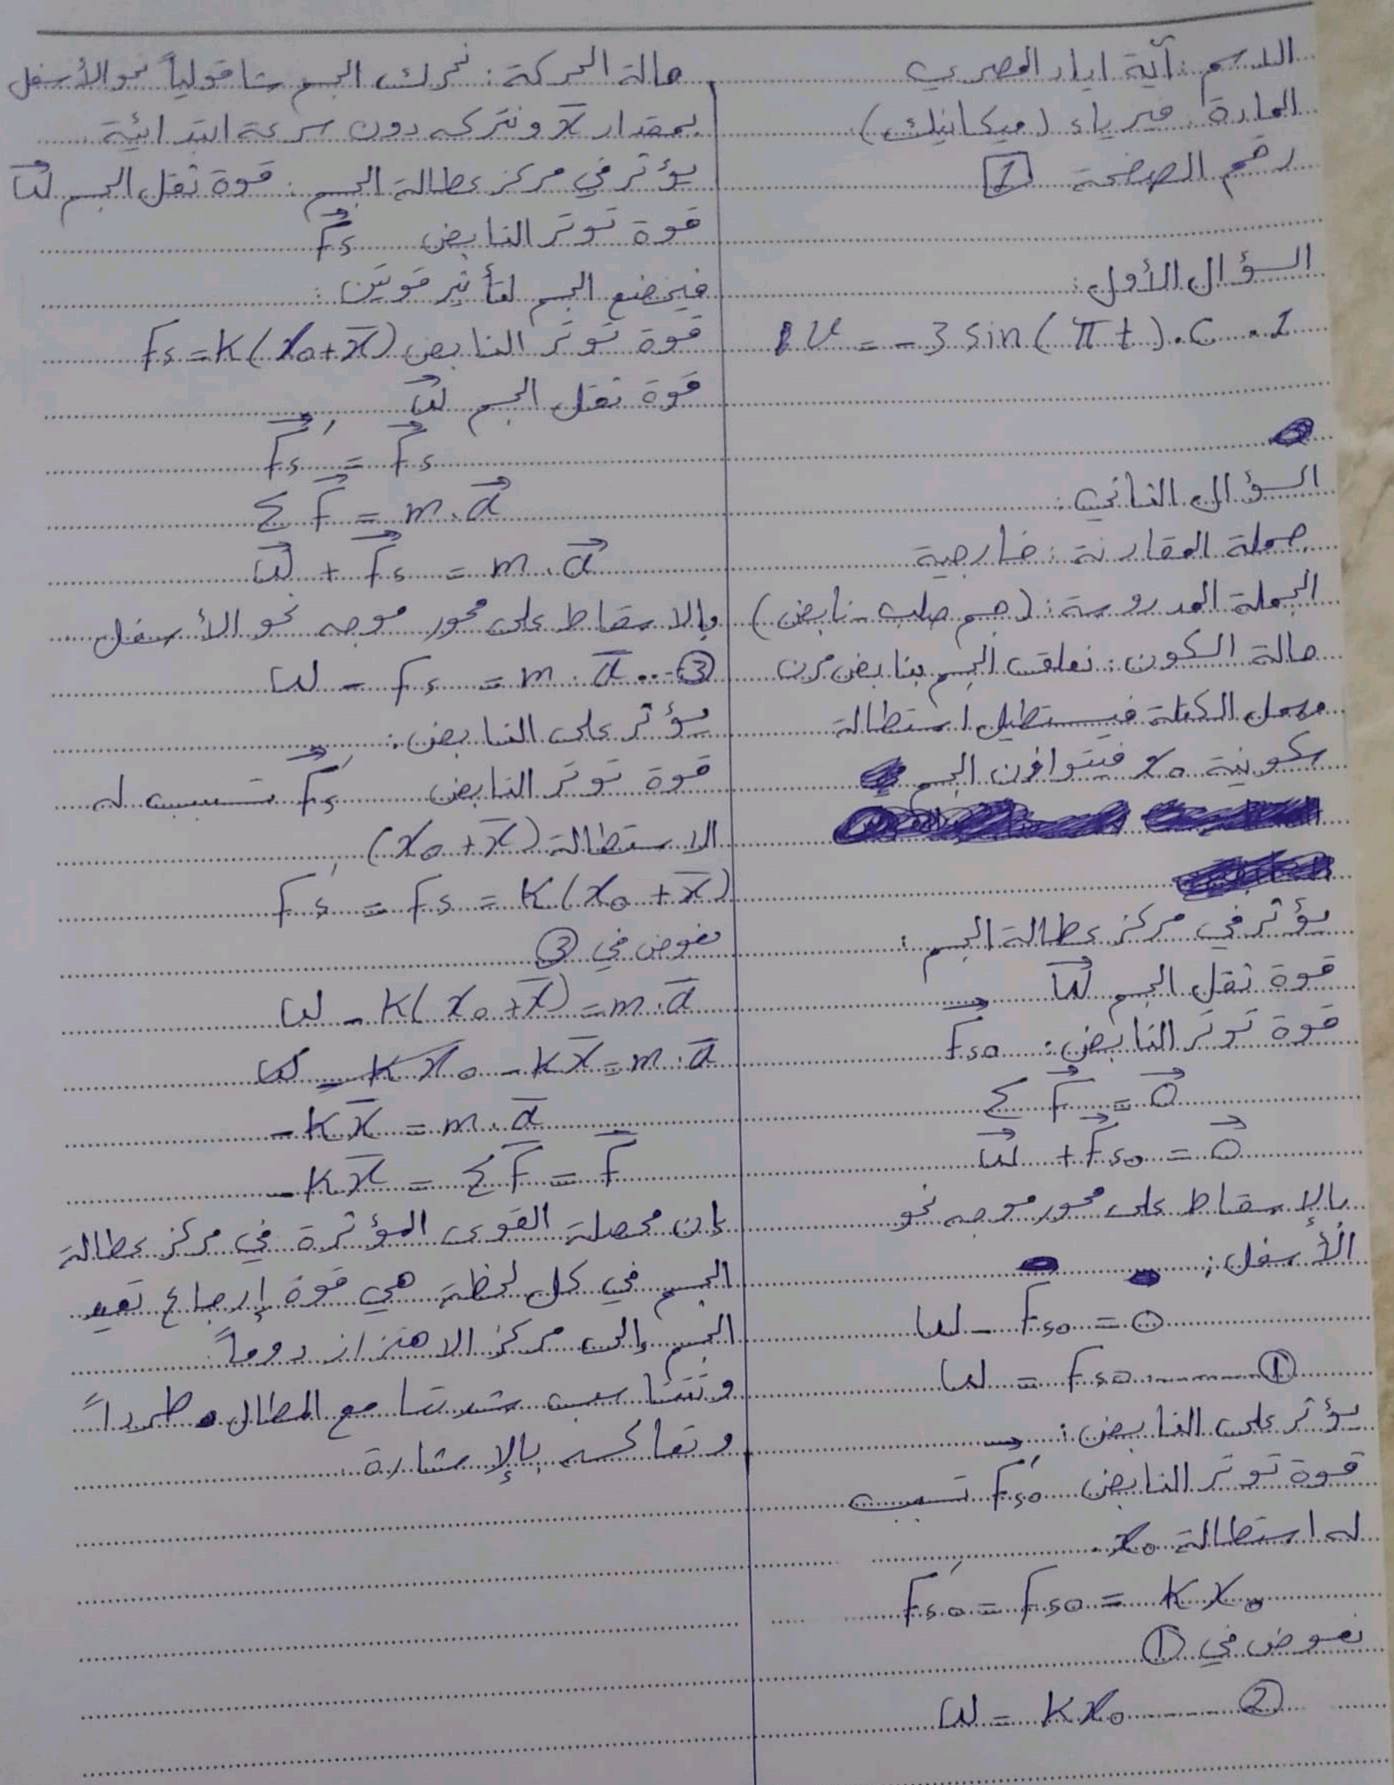 الاسم: آية اياد المصري
المادة: فيزياء (ميكانيك)
رقم الصفحة 1
السؤال الأول:
1. C. v = -3 sin(πt)
السؤال الثاني:
جملة المقارنة: خارجية
الجملة المدروسة: (جسم صلب - نابض)
حالة السكون: نعلق الجسم بنابض مرن
مهمل الكتلة فيستطيل استطالة
سكونية x₀ فيتوازن الجسم
يؤثر في مركز عطالة الجسم:
قوة ثقل الجسم W⃗
قوة توتر النابض: F⃗s₀
Σ F⃗ = 0⃗
W⃗ + F⃗s₀ = 0⃗
بالإسقاط على محور موجه نحو
الأسفل:
W - Fs₀ = 0
W = Fs₀ ........ ①
يؤثر على النابض:
قوة توتر النابض F⃗s₀′ تسبب
له استطالة x₀.
Fs₀′ = Fs₀ = K x₀
نعوض في ①
W = K x₀ ........ ②
حالة الحركة: نحرك الجسم شاقولياً نحو الأسفل
بمقدار x̄ ونتركه دون سرعة ابتدائية
يؤثر في مركز عطالة الجسم: قوة ثقل الجسم W⃗
قوة توتر النابض F⃗s
فيخضع الجسم لتأثير قوتين:
قوة توتر النابض Fs = K(x₀ + x̄)
قوة ثقل الجسم W⃗
F⃗s′ = F⃗s
Σ F⃗ = m . a⃗
W⃗ + F⃗s = m . a⃗
بالاسقاط على محور موجه نحو الأسفل
W - Fs = m . ā ... ③
يؤثر على النابض:
قوة توتر النابض F⃗s′ تسبب له
الاستطالة (x₀ + x̄)
Fs′ = Fs = K(x₀ + x̄)
نعوض في ③
W - K(x₀ + x̄) = m . ā
W - K x₀ - K x̄ = m . ā
- K x̄ = m . ā
- K x̄ = Σ F̄ = F̄
إن محصلة القوى المؤثرة في مركز عطالة
الجسم في كل لحظة هي قوة إرجاع تعيد
الجسم إلى مركز الاهتزاز دوماً
وتتناسب شدتها مع المطال طرداً
وتعاكسه بالإشارة